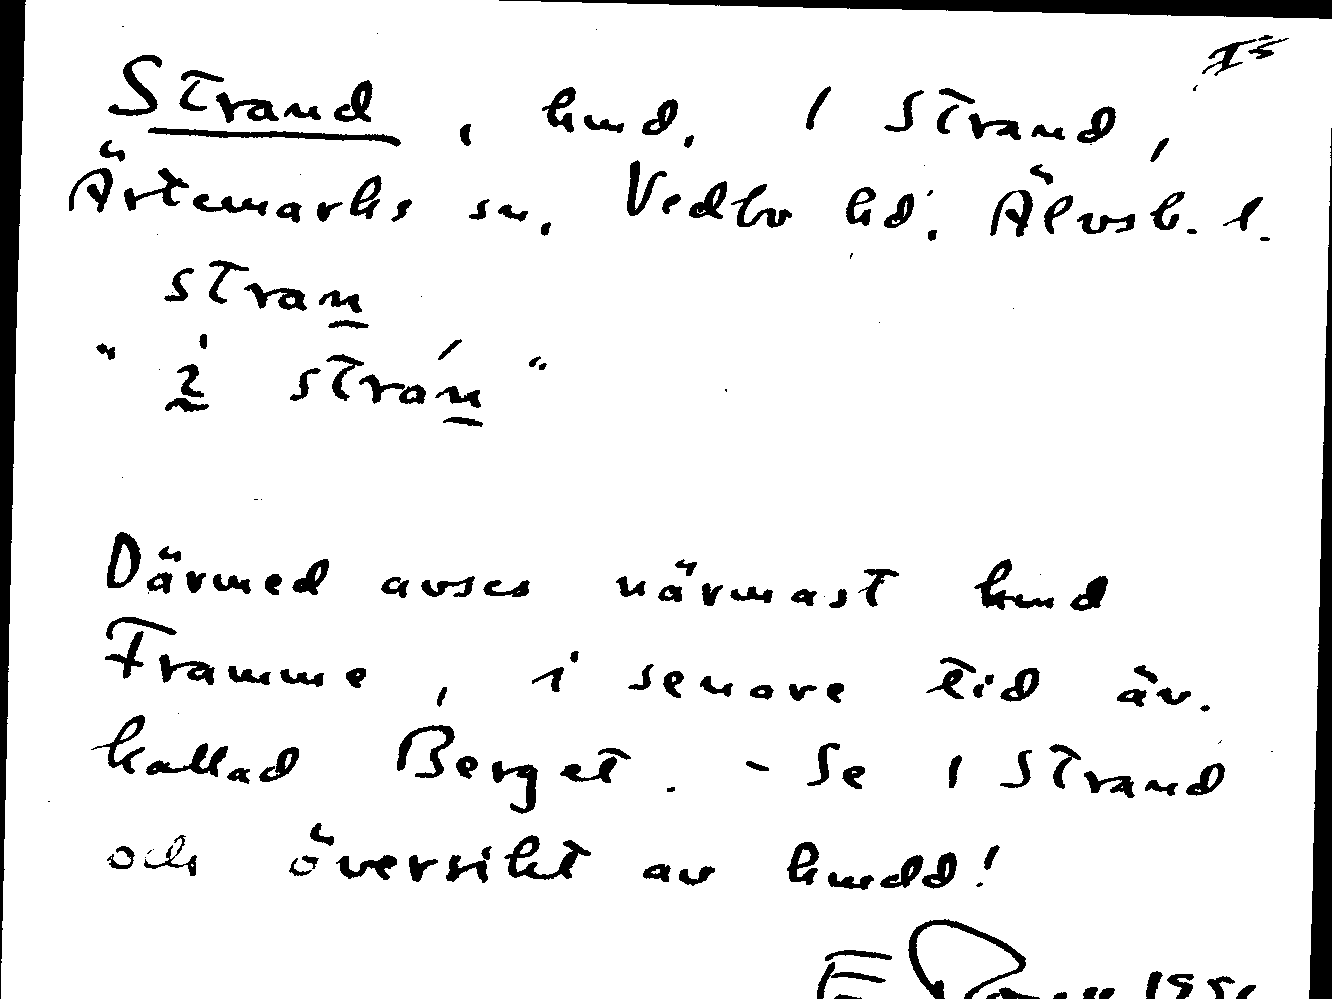 Is
Strand, hmd. 1 Strand,
Ärtemarks sn. Vedbo hd. Älvsb. l.
stran
"2 strán"
Därmed avses närmast hmd
Framme, i senare tid äv.
kallad Berget. - Se 1 Strand
och översikt av hmdd!